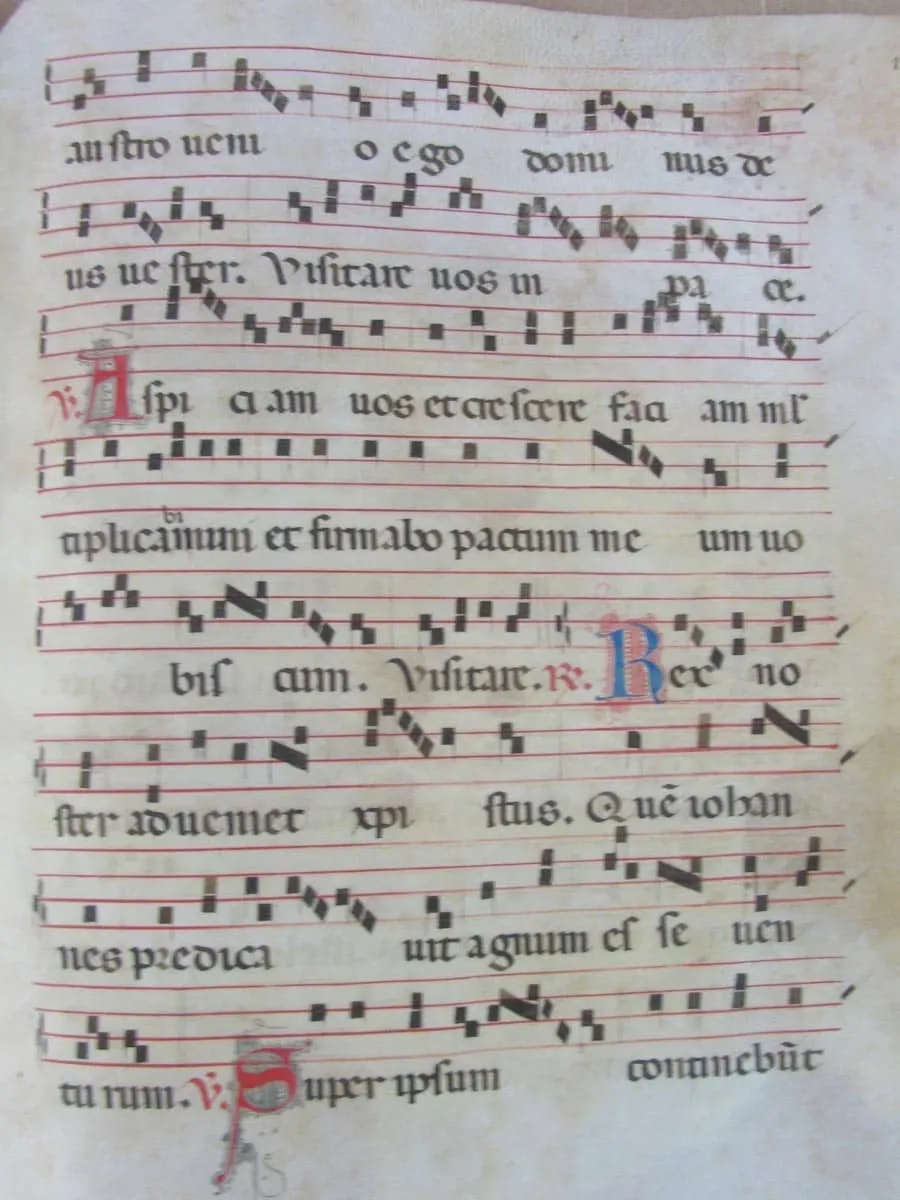 austro ueni o ego domi nus de
us ue ster. Visitare uos in pa ce.
℣. Aspi ci am uos et crescere faci am ml̄
tiplicabimini et firmabo pactum me um uo
bis cum. Visitare. ℟. Rex no
ster adueniet xpi stus. Quē iohan
nes predica uit agnum es se uen
tu rum. ℣. Super ipsum continebūt